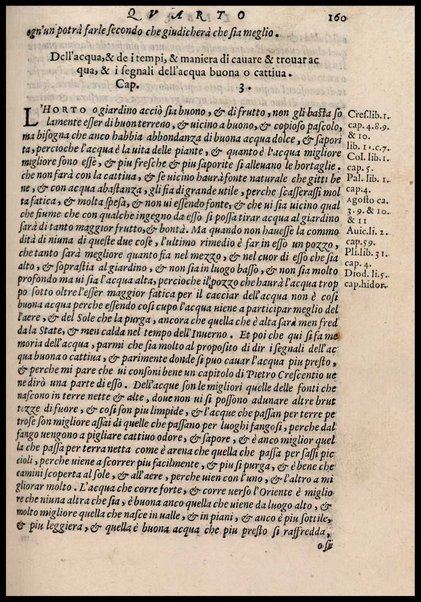 QVARTO 160
ogn'un potrà farle secondo che giudicherà che sia meglio.
Dell'acqua, & de i tempi, & maniera di cauare & trouar ac
qua, & i segnali dell'acqua buona o cattiua.
Cap. 3.
L'HORTO o giardino acciò sia buono, & di frutto, non gli basta so
lamente esser di buon terreno, & uicino a buono, & copioso pascolo,
ma bisogna che anco habbia abbondanza di buona acqua dolce, & sapori
ta, percioche l'acqua è la uita delle piante, & quanto è l'acqua migliore
migliore sono esse, & piu fresche & piu saporite si alleuano le hortaglie.
che non farà con la cattiua, & se uicino haurà fonte naturale che gitti bene,
& con acqua abastanza, gli fia di grande utile, perche scasserassi mol
ta fatica, & molta spesa, & non ui essendo fonte, & che ui sia uicino qual
che fiume che con qualche ingegno da esso si possa tirar acqua al giardino
sarà di tanto maggior frutto, & bontà. Ma quando non hauesse la commo
dità di niuna di queste due cose, l'ultimo rimedio è far in esso un pozzo,
che tanto sarà megliore quanto sia nel mezzo, & nel cuor di esso che sia
alto, & soprastia al giardino, & non sia in luogo basso, & non sia molto
profondo ma ui sia l'acqua alta, percioche il pozzo che haurà l'acqua trop
po sotto oltre l'esser maggior fatica per il cacciar dell'acqua non è cosi
buona acqua perche essendo cosi cupo l'acqua uiene a participar meglio del
l'aere, & del Sole che la purga, ancora che quella che è alta sarà men fred
da la State, & men calda nel tempo dell'Inuerno. Et poi che qui si fa me
moria dell'acqua, parmi che sia molto al proposito di dir i segnali dell'ac
qua buona o cattiua, & parimente donde si puo cauar l'acqua piu presto,
& perche mi pare che ui consoni bene un capitolo di Pietro Crescentio ue
ne dirò una parte di esso. Dell'acque son le migliori quelle delle fonti che
nascono in terre nette & alte, doue non ui si possono adunare altre brut
tezze di fuore, & cosi son piu limpide, & l'acque che passan per terre pe
trose son migliore assai di quelle che passano per luoghi fangosi, perche dal
fango uengono a pigliare cattiuo odore, & sapore, & è anco miglior quel
la che passa per terra netta come è arena che quella che passa per sassi pic
cioli, perche uiene a scorrer piu facilmente, & piu si purga, & è bene che
camini scoperta al sole, & all'aere, perche uien con l'uno, & l'altro a mi
gliorar molto. L'acqua che corre forte, & corre uerso l'Oriente è miglio
re che niuna altra che sia, è buona anco quella che uiene da luogo alto, &
molto migliore quella che nasce in ualle, & in piani, & anco è piu sottile,
& piu leggiera, & quella è buona acqua che piu presto si raffredda,
o sia
Cres. lib. 1.
cap. 4. 8. 9.
& 10.
lib. 11. c. 7.
Col. lib. 1.
cap. 5.
Pal. lib. 1.
cap. 4.
Agosto ca.
3. 9. & 10.
& 11
Auic. li. 2.
cap. 59.
Pli. lib. 31.
cap. 4.
Diod. li. 5.
cap. hidor.